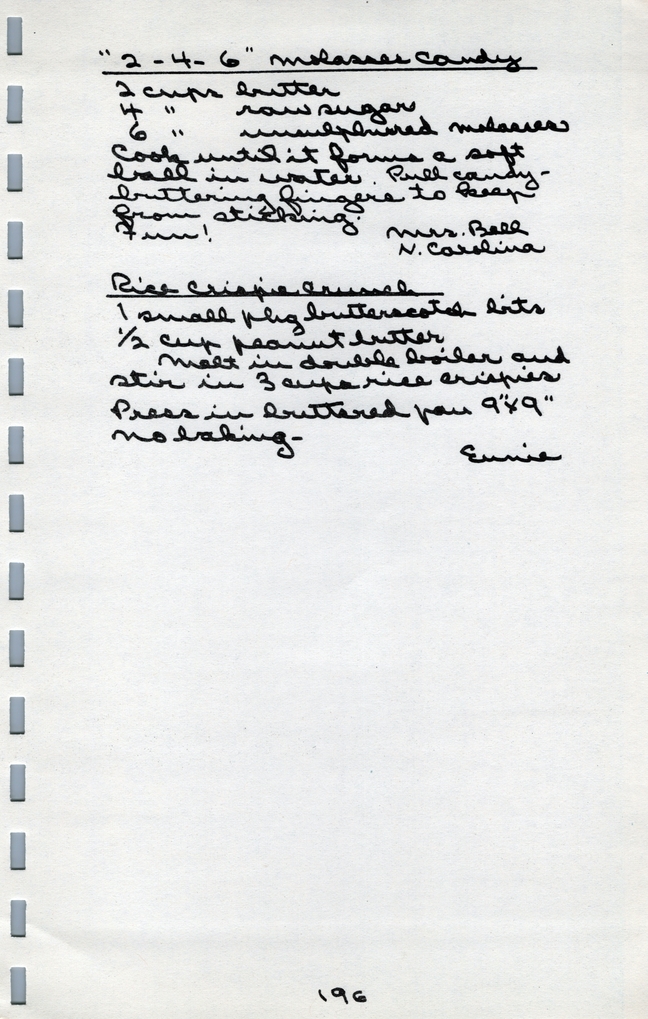 "2-4-6" Molasses Candy
2 cups butter
4 " raw sugar
6 " unsulphured molasses
Cook until it forms a soft
ball in water. Pull candy-
buttering fingers to keep
from sticking.
Fun! Mrs. Bell
N. Carolina
Rice Crispie Crunch
1 small pkg butterscotch bits
1/2 cup peanut butter
Melt in double boiler and
stir in 3 cups rice crispies
Press in buttered pan 9"x9"
No baking-
Eunice
196